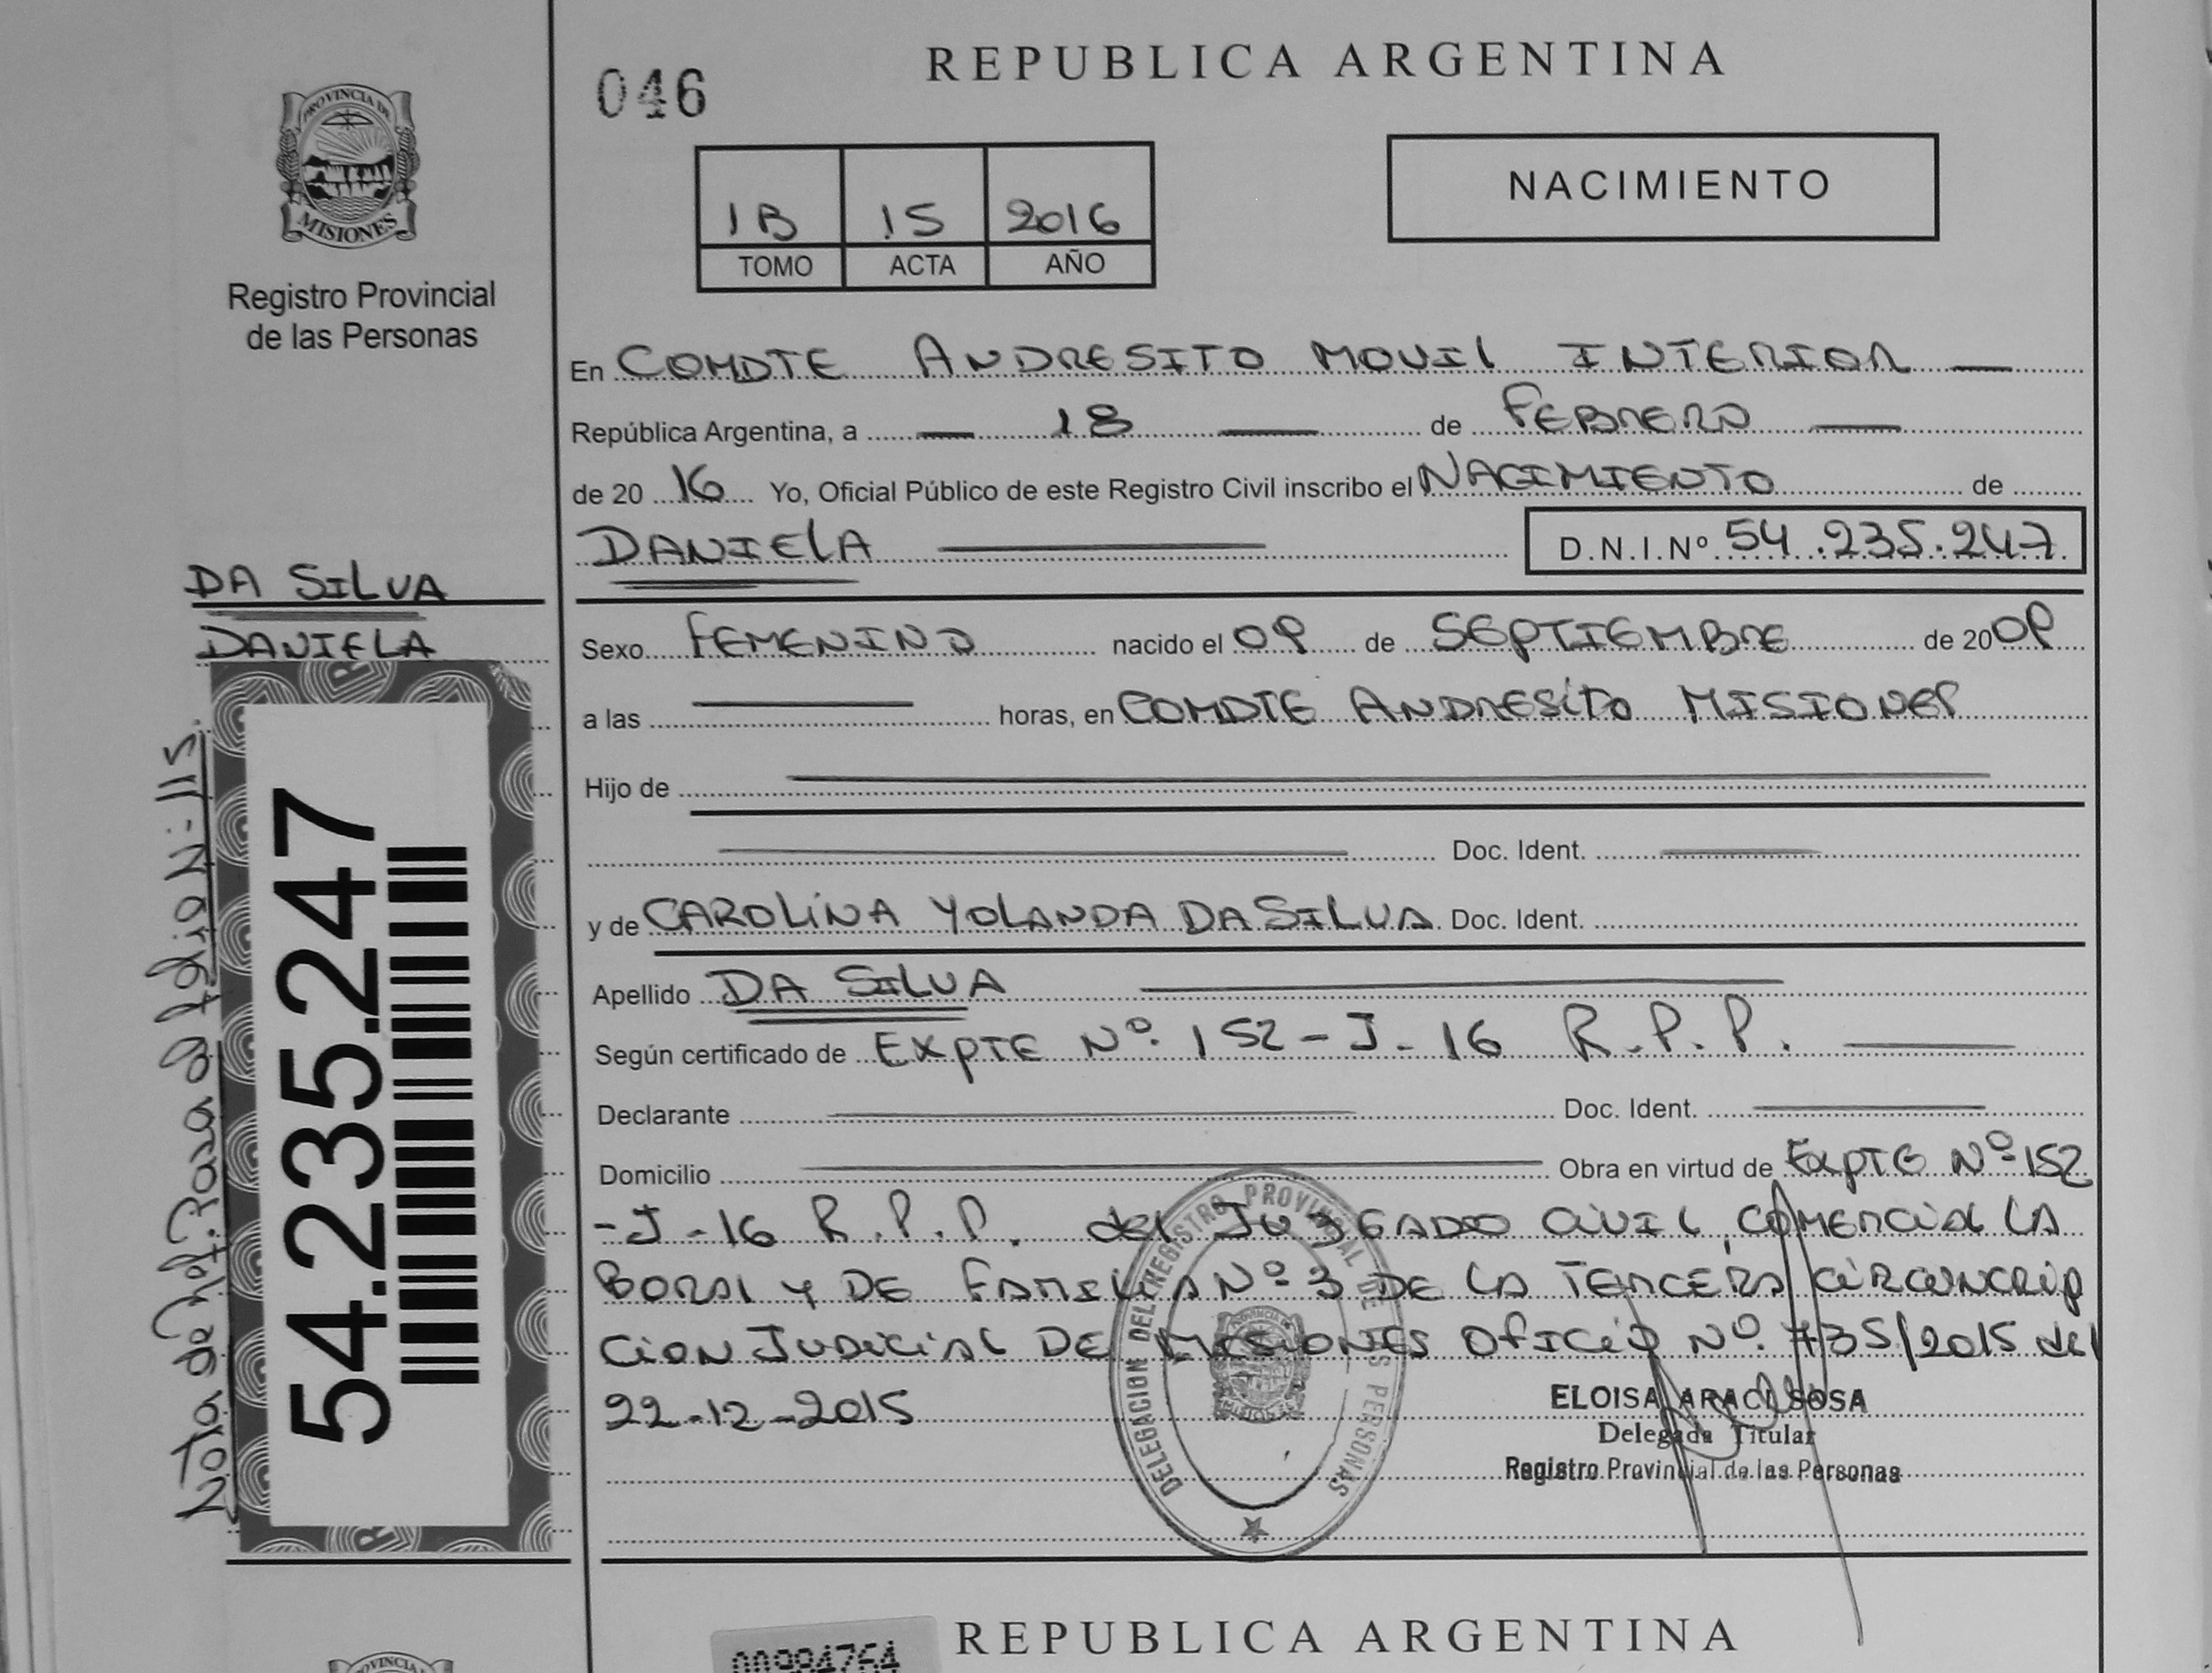 REPUBLICA ARGENTINA
046
PROVINCIA DE
MISIONES
Registro Provincial
de las Personas
NACIMIENTO
1B 15 2016
TOMO ACTA AÑO
En COMDTE ANDRESITO MOVIL INTERIOR
República Argentina, a 18 de FEBRERO
de 20 16 Yo, Oficial Público de este Registro Civil inscribo el NACIMIENTO de
DANIELA D.N.I.Nº 54.235.247
DA SILVA
DANIELA
Sexo FEMENINO nacido el 09 de SEPTIEMBRE de 20 09
a las horas, en COMDTE ANDRESITO MISIONES
Hijo de
Doc. Ident.
y de CAROLINA YOLANDA DA SILVA Doc. Ident.
Apellido DA SILVA
Según certificado de EXPTE Nº 152-J-16 R.P.P.
Declarante Doc. Ident.
Domicilio Obra en virtud de EXPTE Nº 152
-J-16 R.P.P. del JUZGADO CIVIL, COMERCIAL LA
BORAL Y DE FAMILIA Nº 3 DE LA TERCERA CIRCUNCRIP
CION JUDICIAL DE MISIONES OFICIO Nº 735/2015 del
22-12-2015
54.235.247
Nota de Ref. Pasa al folio Nº 115.
DELEGACION DEL REGISTRO PROVINCIAL DE LAS PERSONAS
ELOISA ARACI SOSA
Delegada Titular
Registro Provincial de las Personas
REPUBLICA ARGENTINA
00984764